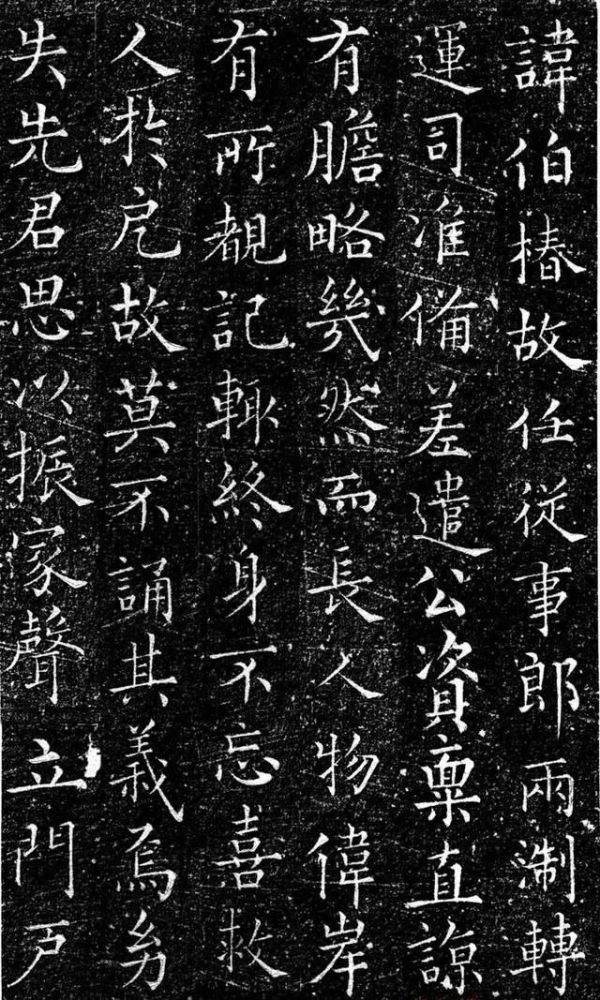 諱伯椿故任從事郎兩淛轉
運司准備差遣公資稟直諒
有膽略幾然而長人物偉岸
有所覩記輒終身不忘喜救
人於戹故莫不誦其義焉幼
失先君思以振家聲立門戶